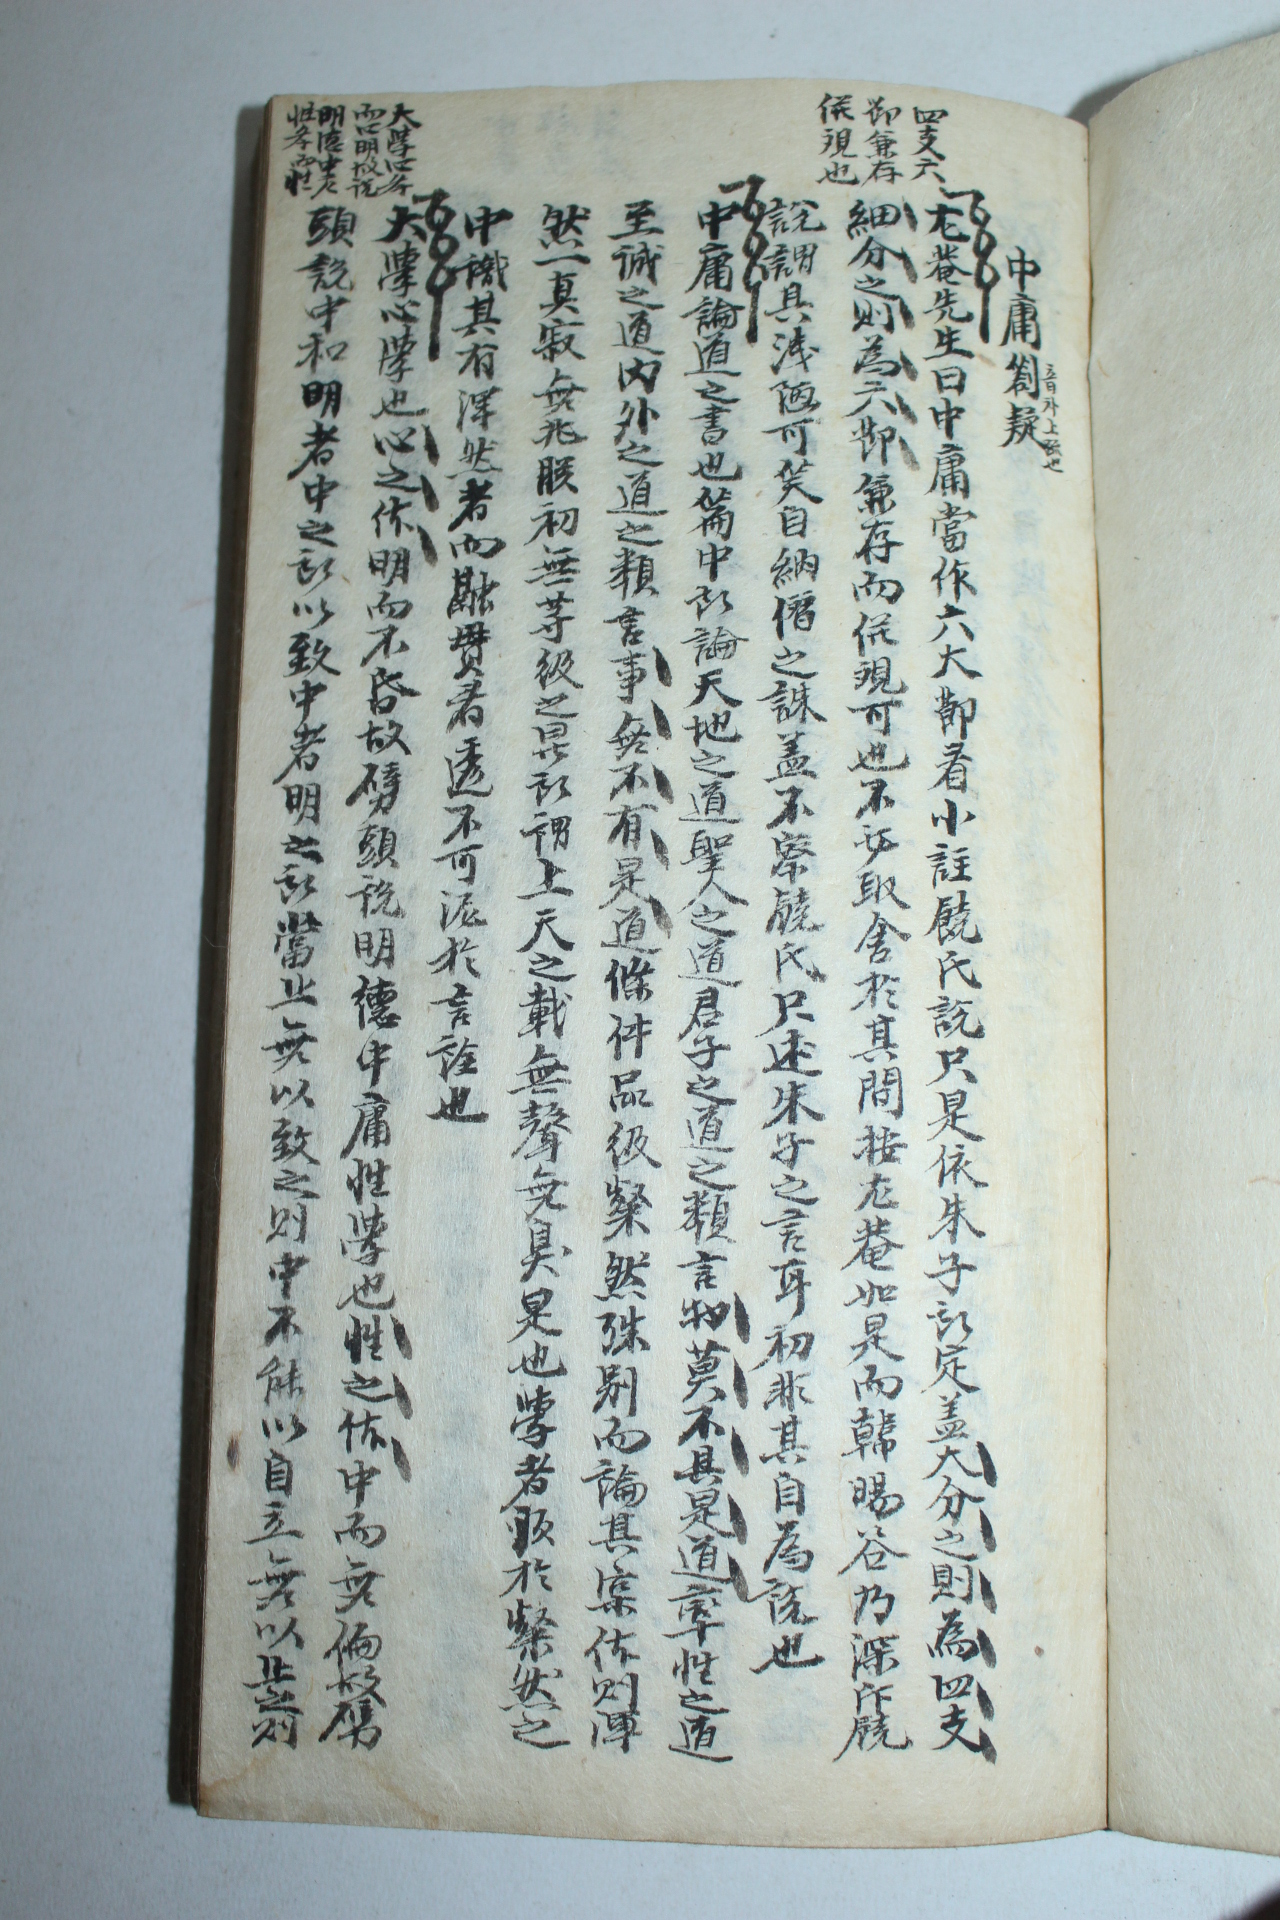 四支六
節兼存
俱現也
大學心學
而曰明故說
明德中庸
性學而性
中庸劄疑
尤菴先生曰中庸當作六大節看小註饒氏說只是依朱子所定盖大分之則為四支
細分之則為六節兼存而俱現可也不必取舍於其間按尤菴如是而韓暘谷乃深斥饒
說謂其淺陋可笑自納僭之誅盖不察饒氏只述朱子之言耳初非其自為說也
中庸論道之書也篇中所論天地之道聖人之道君子之道之類言物莫不具是道率性之道
至誠之道內外之道之類言事無不有是道條件品級粲然殊別而論其実体則渾
然一真寂無兆朕初無等級之異所謂上天之載無聲無臭是也學者須於粲然之
中識其有渾然者而融貫看透不可泥於言詮也
大學心學也心之体明而不昏故劈頭說明德中庸性學也性之体中而無偏故劈
頭說中和明者中之所以致中者明之所當止無以致之則中不能以自立無以止之則